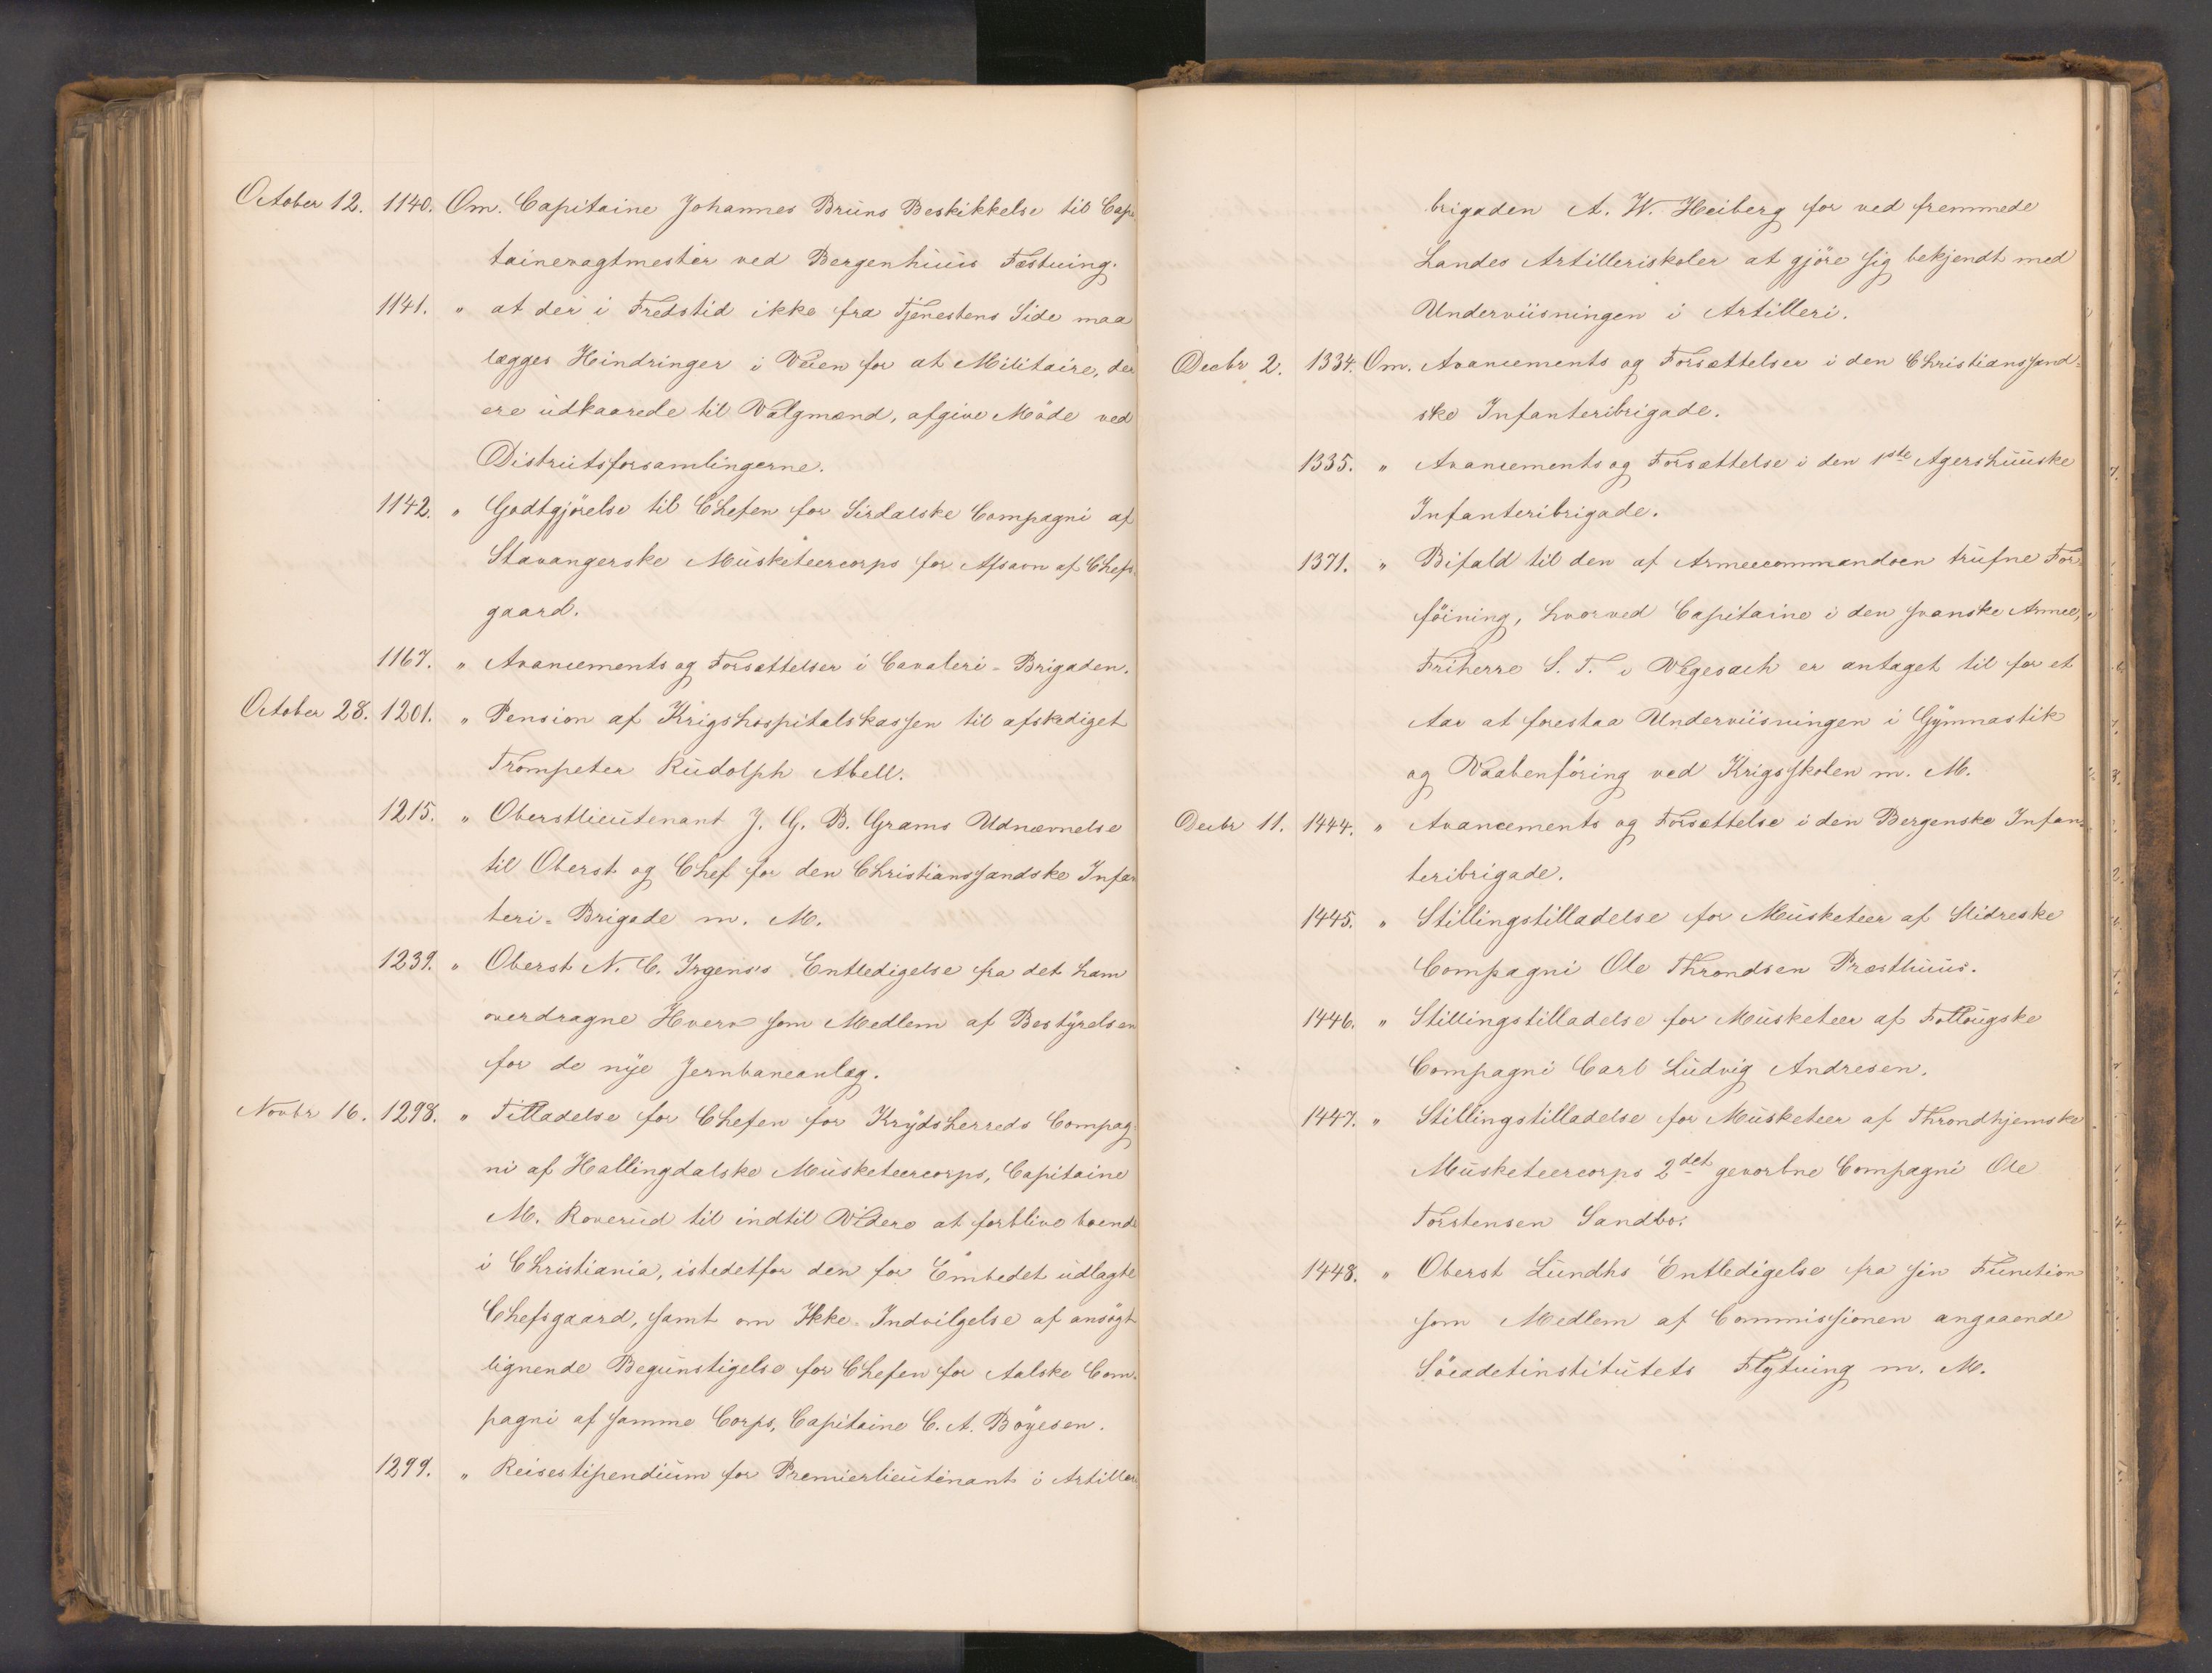 October 12. 1140. Om. Capitaine Johannes Bruns Beskikkelse til Capi-
tainevagtmester ved Bergenhuus Fæstning.
1141. " at der i Fredstid ikke fra Tjenestens Side maa
lægges Hindringer i Veien for at Militaire, der
ere udkaarede til Valgmænd, afgive Møde ved
Districtsforsamlingerne.
1142. " Godtgjörelse til Chefen for Sirdalske Compagni af
Stavangerske Musketeercorps for Afsavn af Chefs-
gaard.
1167. " Avancements og Forsættelser i Cavaleri-Brigaden.
October 28. 1201. " Pension af Krigshospitalskassen til afskediget
Trompeter Rudolph Abell.
1215. " Oberstlieutenant J. G. B. Grams Udnævnelse
til Oberst og Chef for den Christianssandske Infan
teri-Brigade m. M.
1239. " Oberst N. C. Irgens's Entledigelse fra det ham
overdragne Hverv som Medlem af Bestyrelsen
for de nye Jernbaneanlæg.
Novbr 16. 1298. " Tilladelse for Chefen for Krydsherreds Compag-
ni af Hallingdalske Musketeercorps, Capitaine
M. Roverud til indtil Videre at forblive boende
i Christiania, istedetfor den for Embedet udlagte
Chefsgaard, samt om Ikke-Indvilgelse af ansøgt
lignende Begunstigelse for Chefen for Aalske Com-
pagni af samme Corps, Capitaine C. A. Böyesen.
1299. " Reisestipendium for Premierlieutenant i Artilleri
brigaden A. W. Heiberg for ved fremmede
Landes Artilleriskoler at gjöre sig bekjendt med
Underviisningen i Artilleri.
Decbr 2. 1334. Om. Avancements og Forsættelser i den Christianssand-
ske Infanteribrigade.
1335. " Avancements og Forsættelse i den 1ste Agershuuske
Infanteribrigade.
1371. " Bifald til den af Armeecommandoen trufne For-
föining, hvorved Capitaine i den svenske Armee,
Friherre S. T. v Vegesach er antaget til for et
Aar at forestaa Underviisningen i Gymnastik
og Vaabenföring ved Krigsskolen m. M.
Decbr 11. 1444. " Avancements og Forsættelse i den Bergenske Infan-
teribrigade.
1445. " Stillingstilladelse for Musketeer af Slidreske
Compagni Ole Throndsen Præsthuus.
1446. " Stillingstilladelse for Musketeer af Follougske
Compagni Carl Ludvig Andresen.
1447. " Stillingstilladelse for Musketeer af Throndhjemske
Musketeercorps 2det gevorbne Compagni Ole
Torstensen Sandbo.
1448. " Oberst Lundhs Entledigelse fra sin Function
som Medlem af Commissionen angaaende
Söcadetinstitutets Flytning m. M.